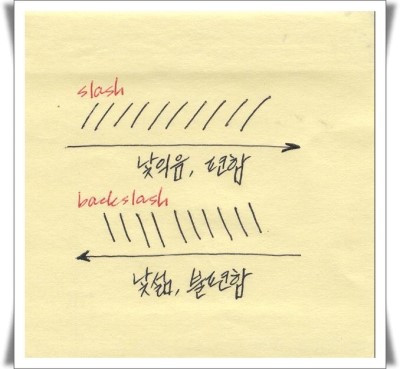 slash
낯익음, 편함
backslash
낯섦, 불편함